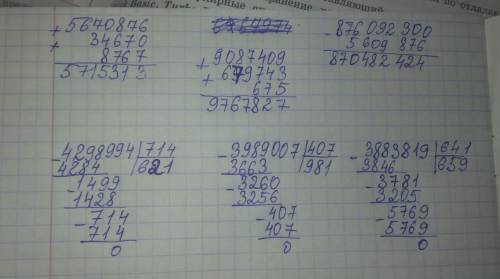 Basic.
+ 5670876
+ 34670
8767
5715313
+ 9087409
+ 679743
675
9767827
- 876 092 300
5 609 876
870 482 424
- 4298994 | 714
4284 | 621
- 1499
1428
- 714
714
0
- 3989007 | 407
3663 | 981
- 3260
3256
- 407
407
0
- 3883819 | 641
3846 | 659
- 3781
3205
- 5769
5769
0